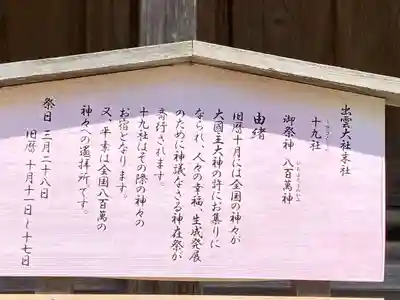 出雲大社末社
十九社
御祭神 八百萬神
由緒
旧暦十月には全国の神々が
大國主大神の許にお集りに
なられ、人々の幸福、生成発展
のために神議なさる神在祭が
斎行されます。
十九社はその際の神々の
お宿となります。
又、平素は全国八百萬の
神々への遥拝所です。
祭日 三月二十八日
旧暦 十月十一日〜十七日